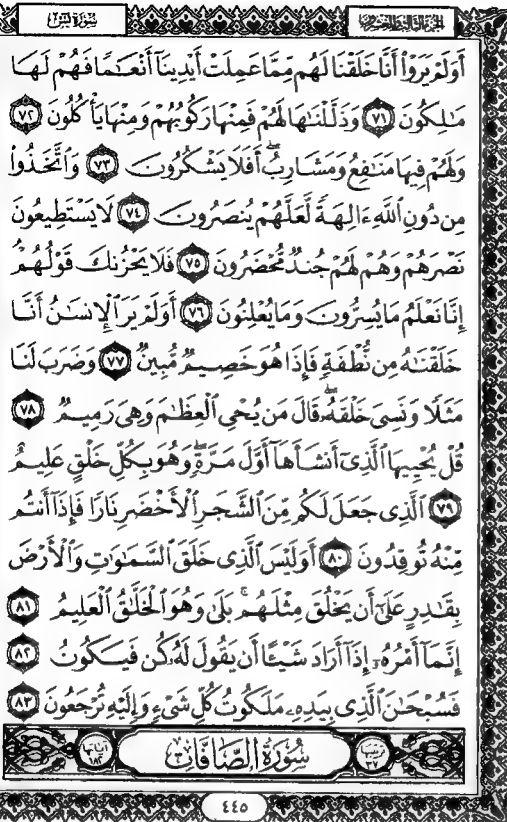 الجزء الثالث والعشرون
سورة يس
أَوَلَمْ يَرَوْا۟ أَنَّا خَلَقْنَا لَهُم مِّمَّا عَمِلَتْ أَيْدِينَآ أَنْعَـٰمًا فَهُمْ لَهَا
مَـٰلِكُونَ ٧١ وَذَلَّلْنَـٰهَا لَهُمْ فَمِنْهَا رَكُوبُهُمْ وَمِنْهَا يَأْكُلُونَ ٧٢
وَلَهُمْ فِيهَا مَنَـٰفِعُ وَمَشَارِبُ ۖ أَفَلَا يَشْكُرُونَ ٧٣ وَٱتَّخَذُوا۟
مِن دُونِ ٱللَّهِ ءَالِهَةً لَّعَلَّهُمْ يُنصَرُونَ ٧٤ لَا يَسْتَطِيعُونَ
نَصْرَهُمْ وَهُمْ لَهُمْ جُندٌ مُّحْضَرُونَ ٧٥ فَلَا يَحْزُنكَ قَوْلُهُمْ ۘ
إِنَّا نَعْلَمُ مَا يُسِرُّونَ وَمَا يُعْلِنُونَ ٧٦ أَوَلَمْ يَرَ ٱلْإِنسَـٰنُ أَنَّا
خَلَقْنَـٰهُ مِن نُّطْفَةٍ فَإِذَا هُوَ خَصِيمٌ مُّبِينٌ ٧٧ وَضَرَبَ لَنَا
مَثَلًا وَنَسِىَ خَلْقَهُۥ ۖ قَالَ مَن يُحْىِ ٱلْعِظَـٰمَ وَهِىَ رَمِيمٌ ٧٨
قُلْ يُحْيِيهَا ٱلَّذِىٓ أَنشَأَهَآ أَوَّلَ مَرَّةٍ ۖ وَهُوَ بِكُلِّ خَلْقٍ عَلِيمٌ
٧٩ ٱلَّذِى جَعَلَ لَكُم مِّنَ ٱلشَّجَرِ ٱلْأَخْضَرِ نَارًا فَإِذَآ أَنتُم
مِّنْهُ تُوقِدُونَ ٨٠ أَوَلَيْسَ ٱلَّذِى خَلَقَ ٱلسَّمَـٰوَٰتِ وَٱلْأَرْضَ
بِقَـٰدِرٍ عَلَىٰٓ أَن يَخْلُقَ مِثْلَهُم ۚ بَلَىٰ وَهُوَ ٱلْخَلَّـٰقُ ٱلْعَلِيمُ ٨١
إِنَّمَآ أَمْرُهُۥٓ إِذَآ أَرَادَ شَيْـًٔا أَن يَقُولَ لَهُۥ كُن فَيَكُونُ ٨٢
فَسُبْحَـٰنَ ٱلَّذِى بِيَدِهِۦ مَلَكُوتُ كُلِّ شَىْءٍ وَإِلَيْهِ تُرْجَعُونَ ٨٣
ترتيبها ٣٧ سُورَةُ الصَّافَّاتِ آياتها ١٨٢
٤٤٥